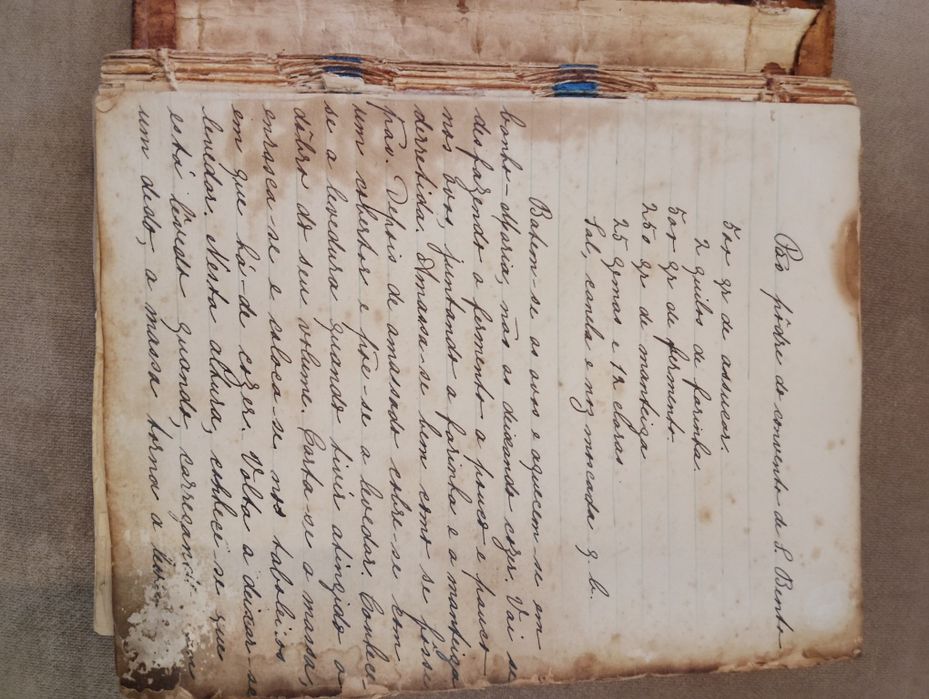 Pão pôdre do convento de S. Bento
500 gr de assucar.
2 quilos de farinha
500 gr de fermento.
250 gr de manteiga
25 gemas e 12 claras
Sal, canela e noz moscada q.b.
Batem-se os ovos e aquecem-se em
banho-Maria, não os deixando cozer. Vai-se
desfazendo o fermento a pouco e pouco
nos ovos, juntando a farinha e a manteiga
derretida. Amassa-se bem como se fosse
pão. Depois de amassado cobre-se com
um cobertor e põe-se a levedar. Conhece-
se a levedura quando tiver atingido o
dôbro do seu volume. Corta-se a massa,
enrosca-se e coloca-se nos taboleiros
em que há-de cozer. Volta a deixar-se
levedar. Nesta altura, conhece-se que
está lêvedo quando, carregando
um dedo, a massa torna a